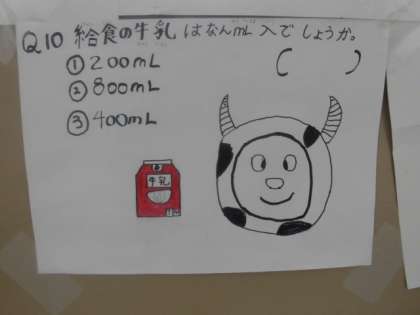 Q10 給食の牛乳はなんmL入でしょうか。
( )
①200mL
②800mL
③400mL
牛乳